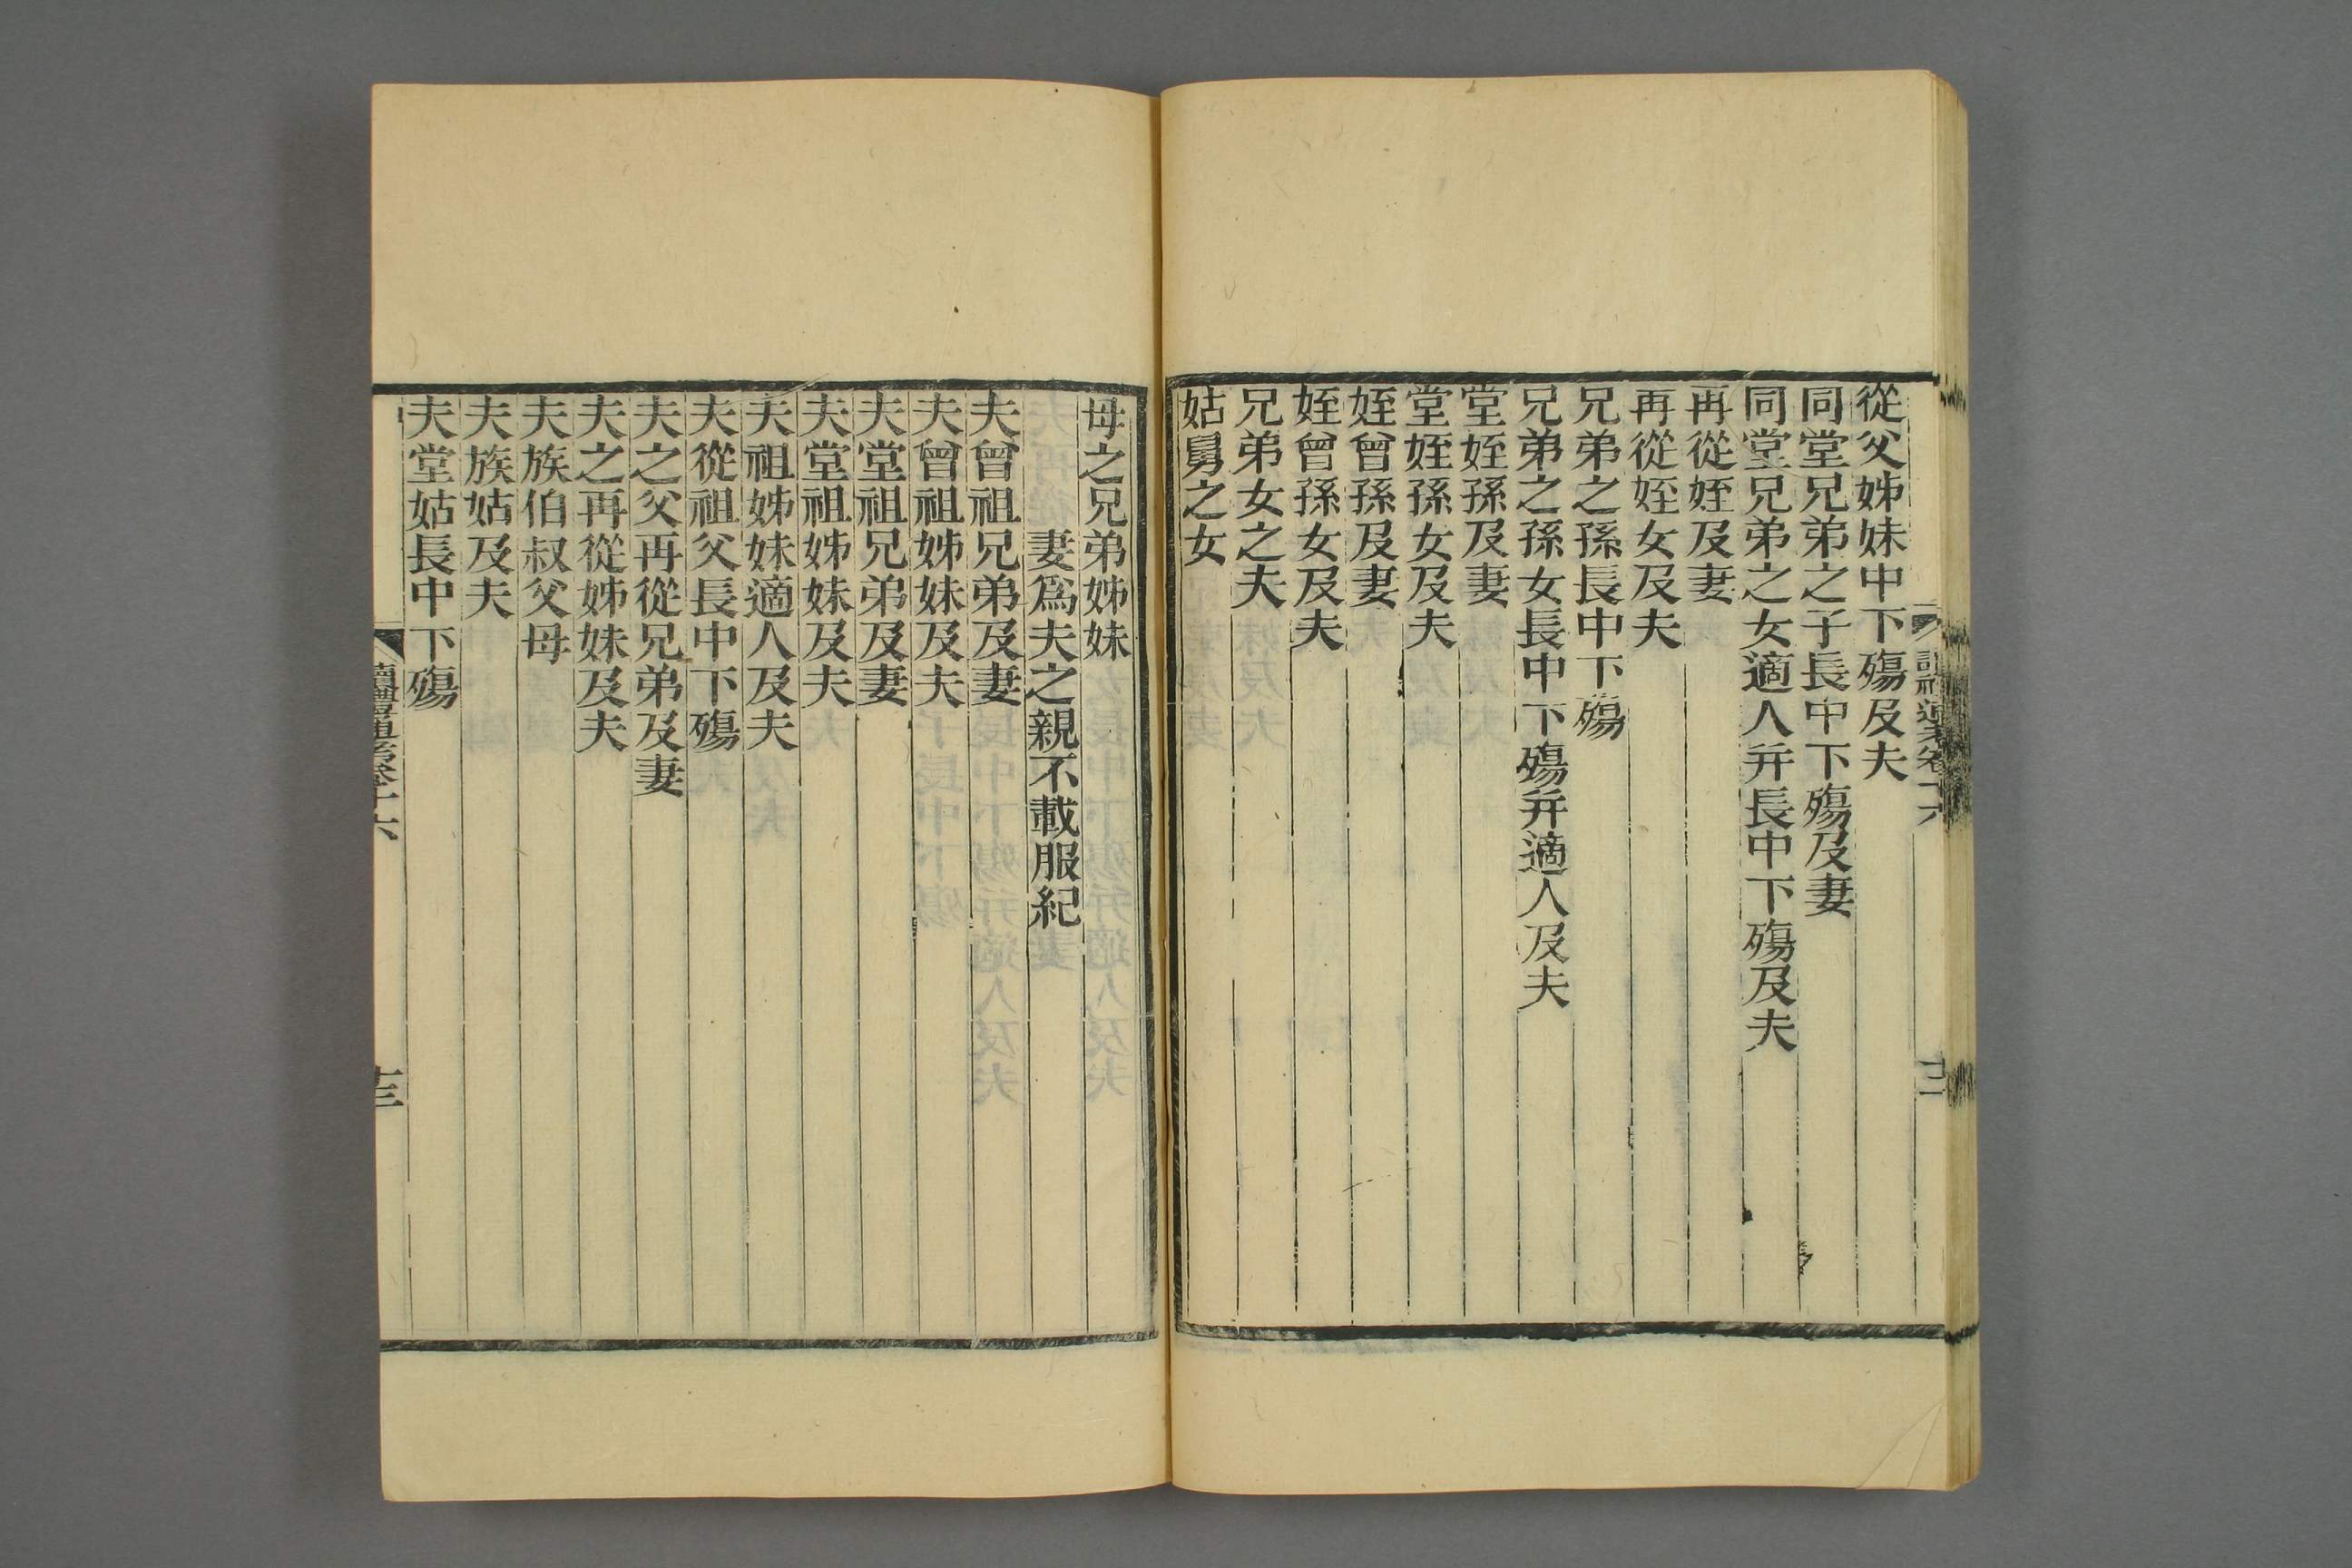 從父姊妹中下殤及夫
同堂兄弟之子長中下殤及妻
同堂兄弟之女適人并長中下殤及夫
再從姪及妻
再從姪女及夫
兄弟之孫長中下殤
兄弟之孫女長中下殤并適人及夫
堂姪孫及妻
堂姪孫女及夫
姪曾孫及妻
姪曾孫女及夫
兄弟女之夫
姑舅之女
母之兄弟姊妹
妻爲夫之親不載服紀
夫曾祖兄弟及妻
夫曾祖姊妹及夫
夫堂祖兄弟及妻
夫堂祖姊妹及夫
夫祖姊妹適人及夫
夫從祖父長中下殤
夫之父再從兄弟及妻
夫之再從姊妹及夫
夫族伯叔父母
夫族姑及夫
夫堂姑長中下殤
讀禮通考卷十六
十三